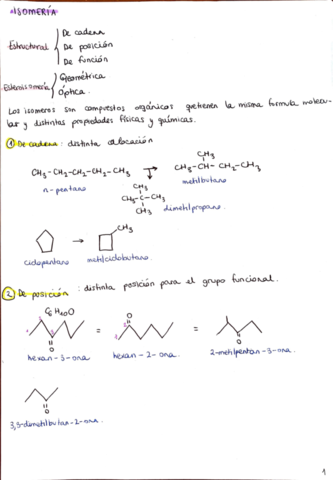 ISOMERÍA
Estructural
De cadena
De posición
De función
Estereoisomería
Geométrica
Óptica.
Los isomeros son compuestos orgánicos que tienen la misma formula molecu-
lar y distintas propiedades físicas y químicas.
1 De cadena: distinta colocación
CH₃-CH₂-CH₂-CH₂-CH₃
n-pentano
CH₃
CH₃-CH-CH₂-CH₃
metilbutano
CH₃
CH₃-C-CH₃
CH₃
dimetilpropano.
ciclopentano
CH₃
metilciclobutano.
2 De posición: distinta posición para el grupo funcional.
O
hexan-3-ona
=
O
hexan-2-ona.
=
O
2-metilpentan-3-ona.
O
3,3-dimetilbutan-2-ona.
1